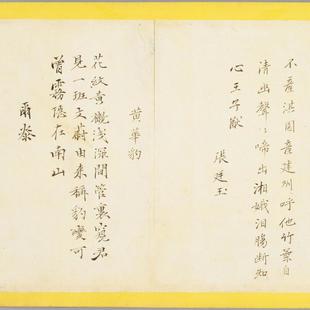 不產淇園產建州呼他竹葉自
清幽聲〻啼出湘娥泪腸斷知
心王子猷
張廷玉
黃華豹
花紋黃襯淺深間管裏窺君
見一班文蔚由来稱豹變可
曾霧隱在南山
爾泰